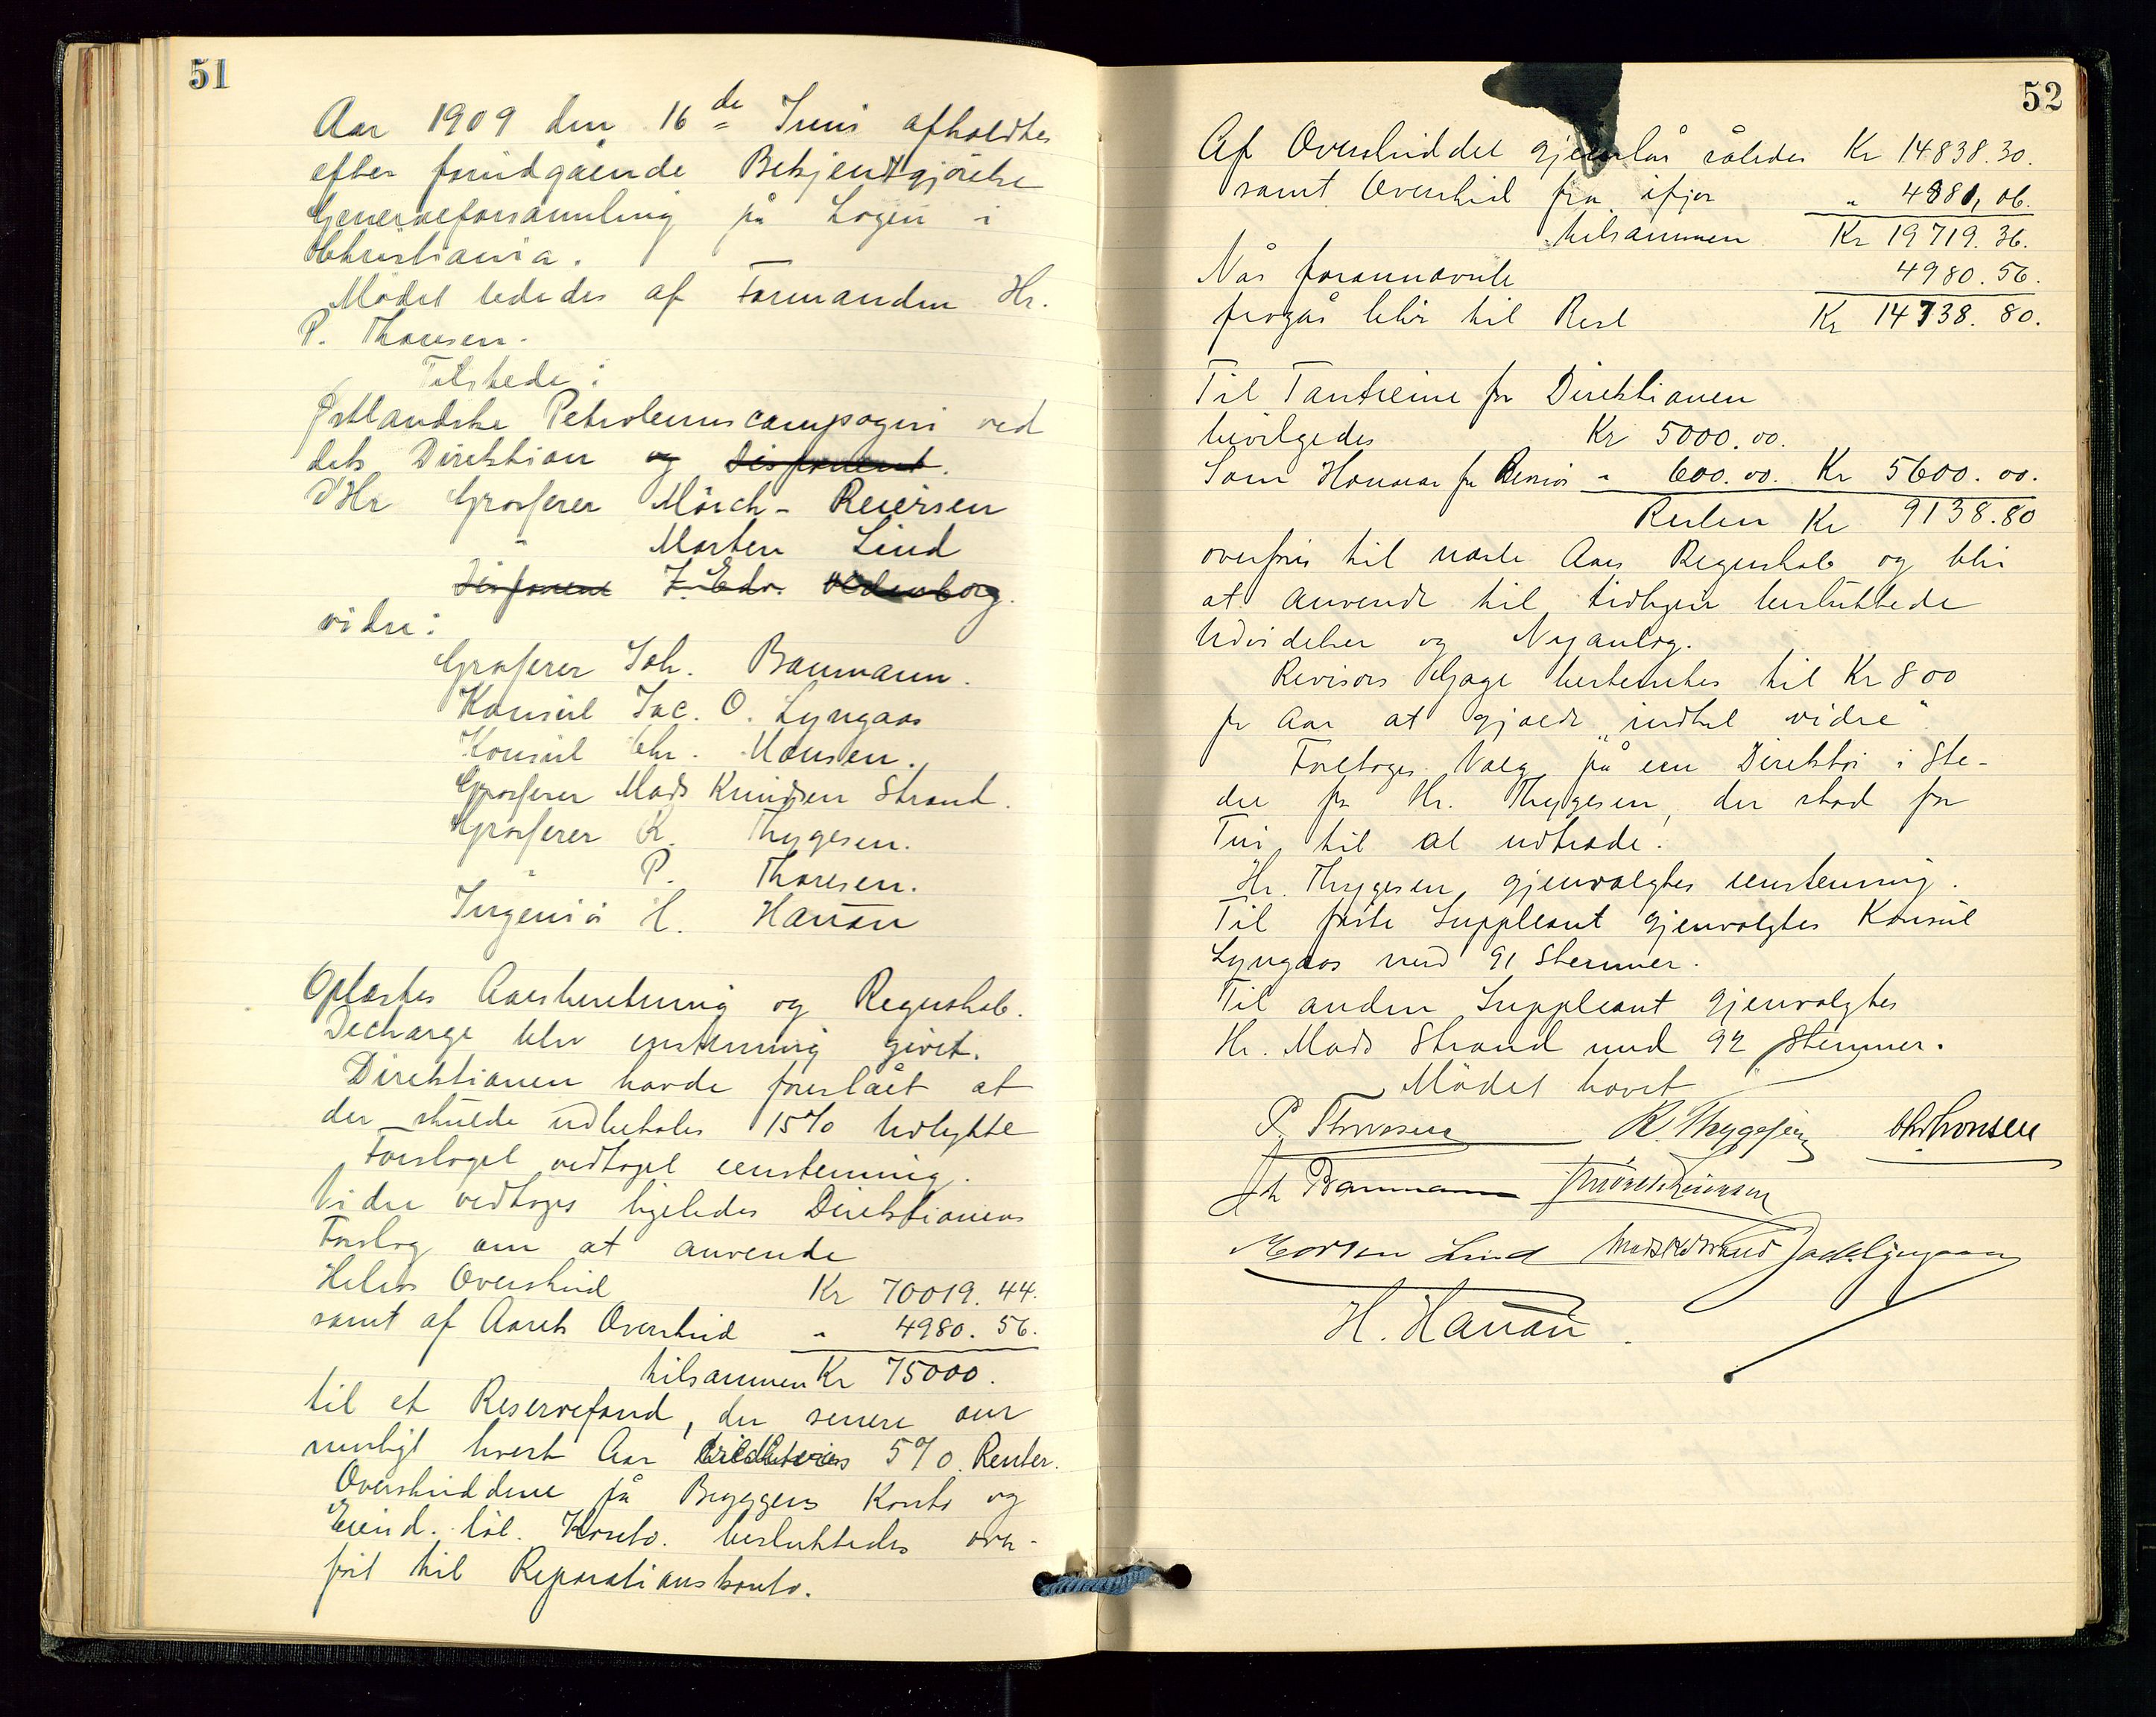 51
Aar 1909 den 16de Juni afholdtes
efter forudgående Bekjentgjörelse
Generalforsamling på Logen i
Christiania.
Mödet lededes af Formanden Hr.
P. Thoresen.
Tilstede:
Østlandske Petroleumscompagni ved
dets Direktion og Disponent.
D'Hr Grosserer Mörch-Reiersen
" Morten Lind
Disponent J. Edv. Oldenborg.
vidre:
Grosserer Joh. Baumann.
Konsul Jac. O. Lyngaas
Konsul Chr. Monsen.
Grosserer Mads Knudsen Strand.
Grosserer R. Thygesen.
" P. Thoresen.
Ingeniör H. Hanan
Oplæstes Aarsberetning og Regnskab.
Decharge blev enstemmig givet.
Direktionen havde foreslået at
der skulde udbetales 15% Udbytte
Forslaget vedtaget eenstemmig.
Vidre vedtoges ligeledes Direktionens
Forslag om at anvende
Heles Overskud Kr 70019.44.
samt af Aarets Overskud " 4980.56.
tilsammen Kr 75000.
til et Reservefond, der senere om
muligt hvert Aar krediteres 5% Renter.
Overskuddene på Byggens Konto og
Eiend. Konto. besluttedes over-
fört til Reparationskonto.
52
Af Overskuddet gjenstår således Kr 14838.30.
samt Overskud fra ifjor " 4881,06.
tilsammen Kr 19719.36.
Når forannævnte 4980.56.
fragår blir til Rest Kr 14738.80.
Til Tantieme for Direktionen
bevilgedes Kr 5000.00.
Som Honorar for Revisor " 600.00. Kr 5600.00.
Resten Kr 9138.80
overföres til næste Aars Regnskab og blir
at anvende til tidligere besluttede
Udvidelser og Nyanlæg.
Revisors Gage bestemtes til Kr 800
pr Aar at gjælde "indtil vidre"
Foretoges Valg på een Direktör i Ste-
det for Hr. Thygesen, der stod for
Tur til at udtræde.
Hr. Thygesen gjenvalgtes eenstemmig.
Til förste Suppleant gjenvalgtes Konsul
Lyngaas med 91 Stemmer.
Til anden Suppleant gjenvalgtes
Hr. Mads Strand med 92 Stemmer.
Mödet hævet
P. Thoresen R. Thygesen Chr Monsen
Joh Baumann Mörch Reiersen
Morten Lind Mads K Strand Jac O. Lyngaas
H. Hanan.